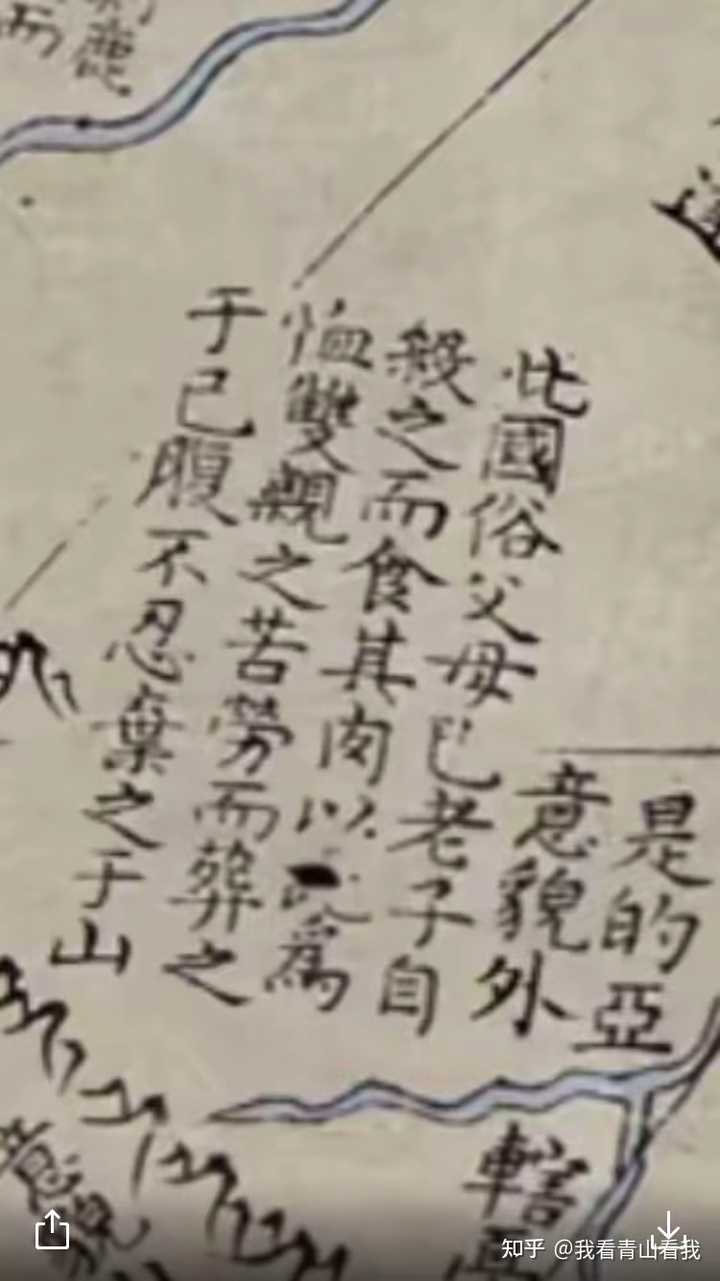 此國俗父母已老子自
殺之而食其肉以為
恤雙親之苦勞而葬之
于己腹不忍棄之于山
是的亞
意貌外
鹿
而
轄
知乎 @我看青山看我